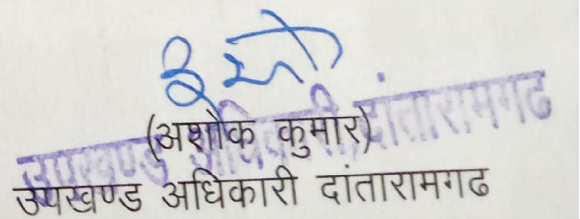 (अशोक कुमार)
उपखण्ड अधिकारी दांतारामगढ
उपखण्ड अधिकारी दांतारामगढ